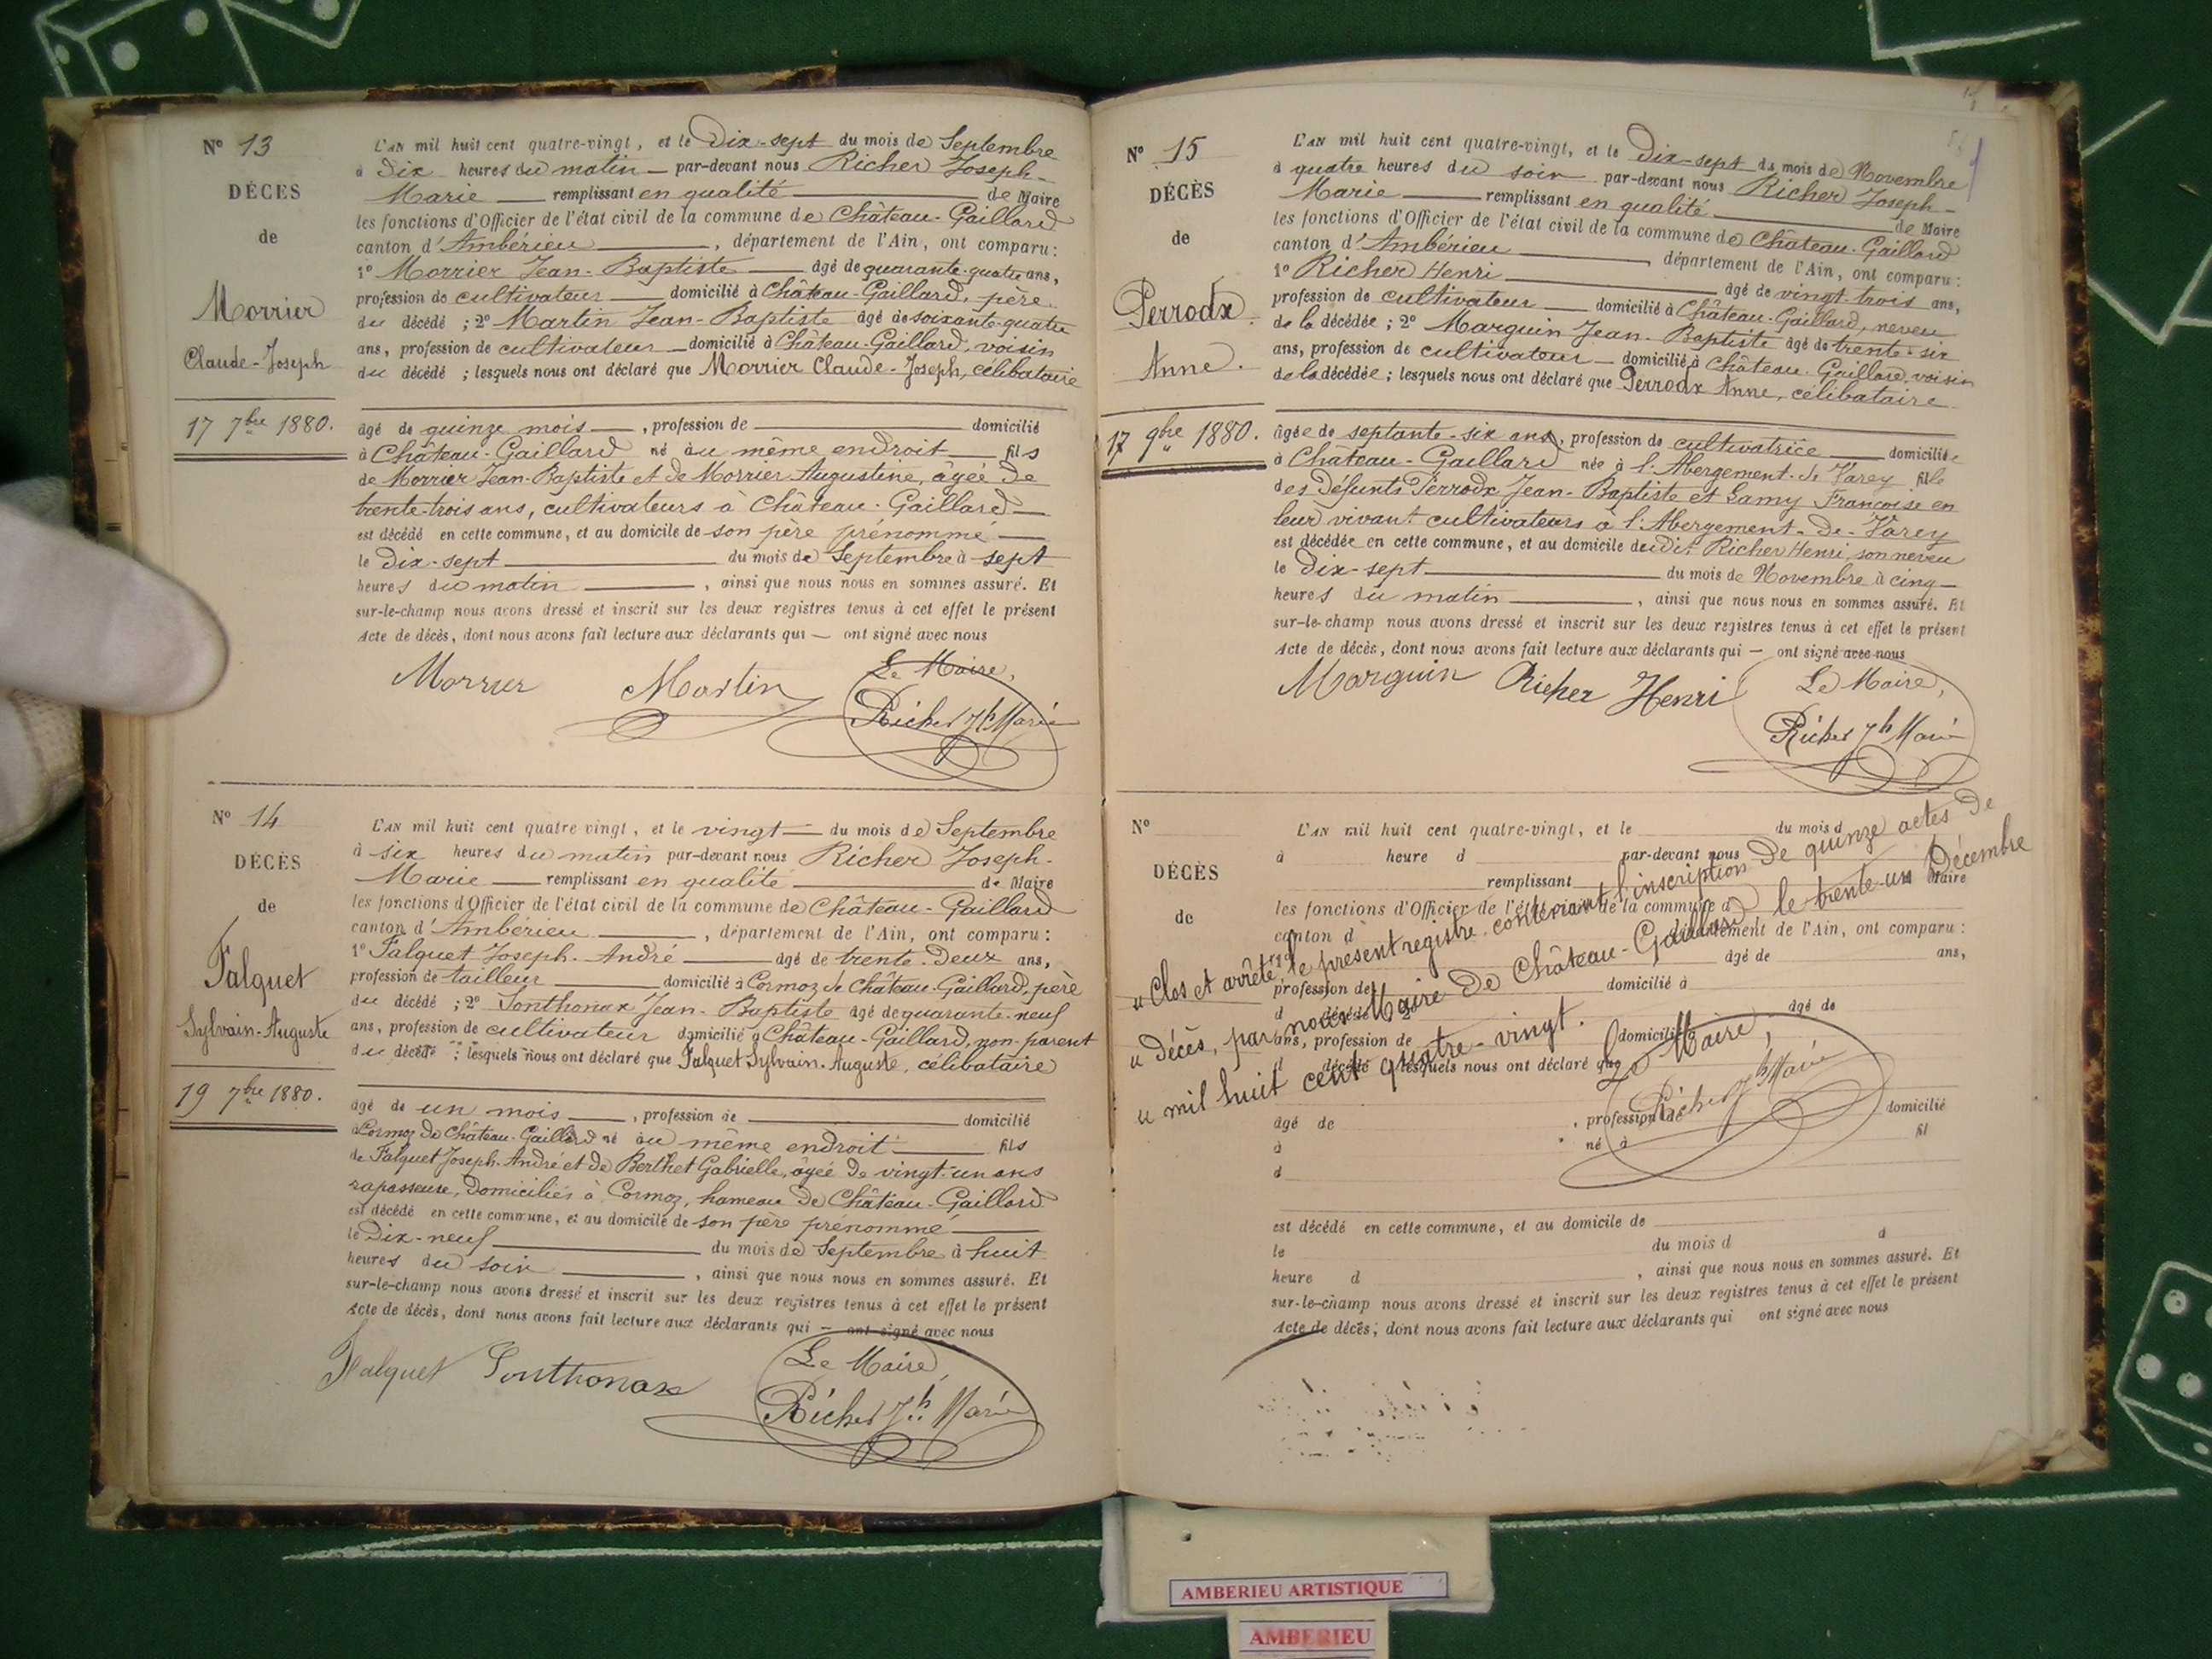 N° 13
DÉCES
de
Morrier
Claude-Joseph
17 7bre 1880.
L'AN mil huit cent quatre-vingt, et le Dix-sept du mois de Septembre
à Dix heures du matin par-devant nous Richer Joseph-
Marie remplissant en qualité de Maire
les fonctions d'Officier de l'état civil de la commune de Château-Gaillard
canton d'Ambérieu, département de l'Ain, ont comparu:
1° Morrier Jean-Baptiste âgé de quarante-quatre ans,
profession de cultivateur domicilié à Château-Gaillard, père
du décédé ; 2° Martin Jean-Baptiste âgé de soixante-quatre
ans, profession de cultivateur domicilié à Château-Gaillard, voisin
du décédé ; lesquels nous ont déclaré que Morrier Claude-Joseph, célibataire
âgé de quinze mois, profession de domicilié
à Château-Gaillard né au même endroit fils
de Morrier Jean-Baptiste et de Morrier Augustine, âgée de
trente-trois ans, cultivateurs à Château-Gaillard
est décédé en cette commune, et au domicile de son père prénommé
le Dix-sept du mois de Septembre à sept
heures du matin, ainsi que nous nous en sommes assuré. Et
sur-le-champ nous avons dressé et inscrit sur les deux registres tenus à cet effet le présent
Acte de décès, dont nous avons fait lecture aux déclarants qui — ont signé avec nous
Morrier Martin Le Maire,
Richer Jh Marie
N° 14
DÉCÈS
de
Falquet
Sylvain-Auguste
19 7bre 1880.
L'AN mil huit cent quatre vingt, et le vingt du mois de Septembre
à six heures du matin par-devant nous Richer Joseph-
Marie remplissant en qualité de Maire
les fonctions d'Officier de l'état civil de la commune de Château-Gaillard
canton d'Ambérieu, département de l'Ain, ont comparu :
1° Falquet Joseph-André âgé de trente-Deux ans,
profession de tailleur domicilié à Cormoz de Château-Gaillard, père
du décédé ; 2° Sonthonax Jean-Baptiste âgé de quarante-neuf
ans, profession de cultivateur domicilié à Château-Gaillard, non-parent
du décédé ; lesquels nous ont déclaré que Falquet Sylvain-Auguste, célibataire
âgé de un mois, profession de domicilié
à Cormoz de Château-Gaillard né au même endroit fils
de Falquet Joseph-André et de Berthet Gabrielle, âgée de vingt-un ans
rapasseuse, Domiciliés à Cormoz, hameau de Château-Gaillard
est décédé en cette commune, et au domicile de son père prénommé
le Dix-neuf du mois de Septembre à huit
heures du soir, ainsi que nous nous en sommes assuré. Et
sur-le-champ nous avons dressé et inscrit sur les deux registres tenus à cet effet le présent
Acte de décès, dont nous avons fait lecture aux déclarants qui — ont signé avec nous
Falquet Sonthonax Le Maire,
Richer Jh Marie
N° 15
DÉCÈS
de
Perrodx
Anne.
17 9bre 1880.
L'AN mil huit cent quatre-vingt, et le Dix-sept du mois de Novembre
à quatre heures du soir par-devant nous Richer Joseph-
Marie remplissant en qualité de Maire
les fonctions d'Officier de l'état civil de la commune de Château-Gaillard
canton d'Ambérieu, département de l'Ain, ont comparu :
1° Richer Henri âgé de vingt-trois ans,
profession de cultivateur domicilié à Château-Gaillard, neveu
de la décédée ; 2° Marguin Jean-Baptiste âgé de trente-six
ans, profession de cultivateur domicilié à Château-Gaillard, voisin
de la décédée ; lesquels nous ont déclaré que Perrodx Anne, célibataire
âgée de septante-six ans, profession de cultivatrice domiciliée
à Château-Gaillard née à l'Abergement-de Varey fille
des Défunts Perrodx Jean-Baptiste et Lamy Françoise en
leur vivant cultivateurs à l'Abergement-De-Varey
est décédée en cette commune, et au domicile dudit Richer Henri, son neveu
le Dix-sept du mois de Novembre à cinq
heures du matin, ainsi que nous nous en sommes assuré. Et
sur-le-champ nous avons dressé et inscrit sur les deux registres tenus à cet effet le présent
Acte de décès, dont nous avons fait lecture aux déclarants qui — ont signé avec nous
Marguin Richer Henri Le Maire,
Richer Jh Marie
N°
DÉCÈS
de
L'AN mil huit cent quatre-vingt, et le du mois d
à heure d par-devant nous
remplissant Maire
les fonctions d'Officier de l'état civil de la commune d
canton d département de l'Ain, ont comparu :
1° âgé de ans,
profession de domicilié à
d décédé ; 2° âgé de
ans, profession de domicilié
d décédé lesquels nous ont déclaré que
« Clos et arrêté le présent registre contenant l'inscription De quinze actes De
« Décès, par nous Maire De Château-Gaillard le trente-un Décembre
« mil huit cent quatre-vingt.
Le Maire,
Richer Jh Marie
âgé de, profession de domicilié
à né à fil
d
est décédé en cette commune, et au domicile de
le du mois d à
heure d, ainsi que nous nous en sommes assuré. Et
sur-le-champ nous avons dressé et inscrit sur les deux registres tenus à cet effet le présent
Acte de décès, dont nous avons fait lecture aux déclarants qui ont signé avec nous
AMBERIEU ARTISTIQUE
AMBERIEU